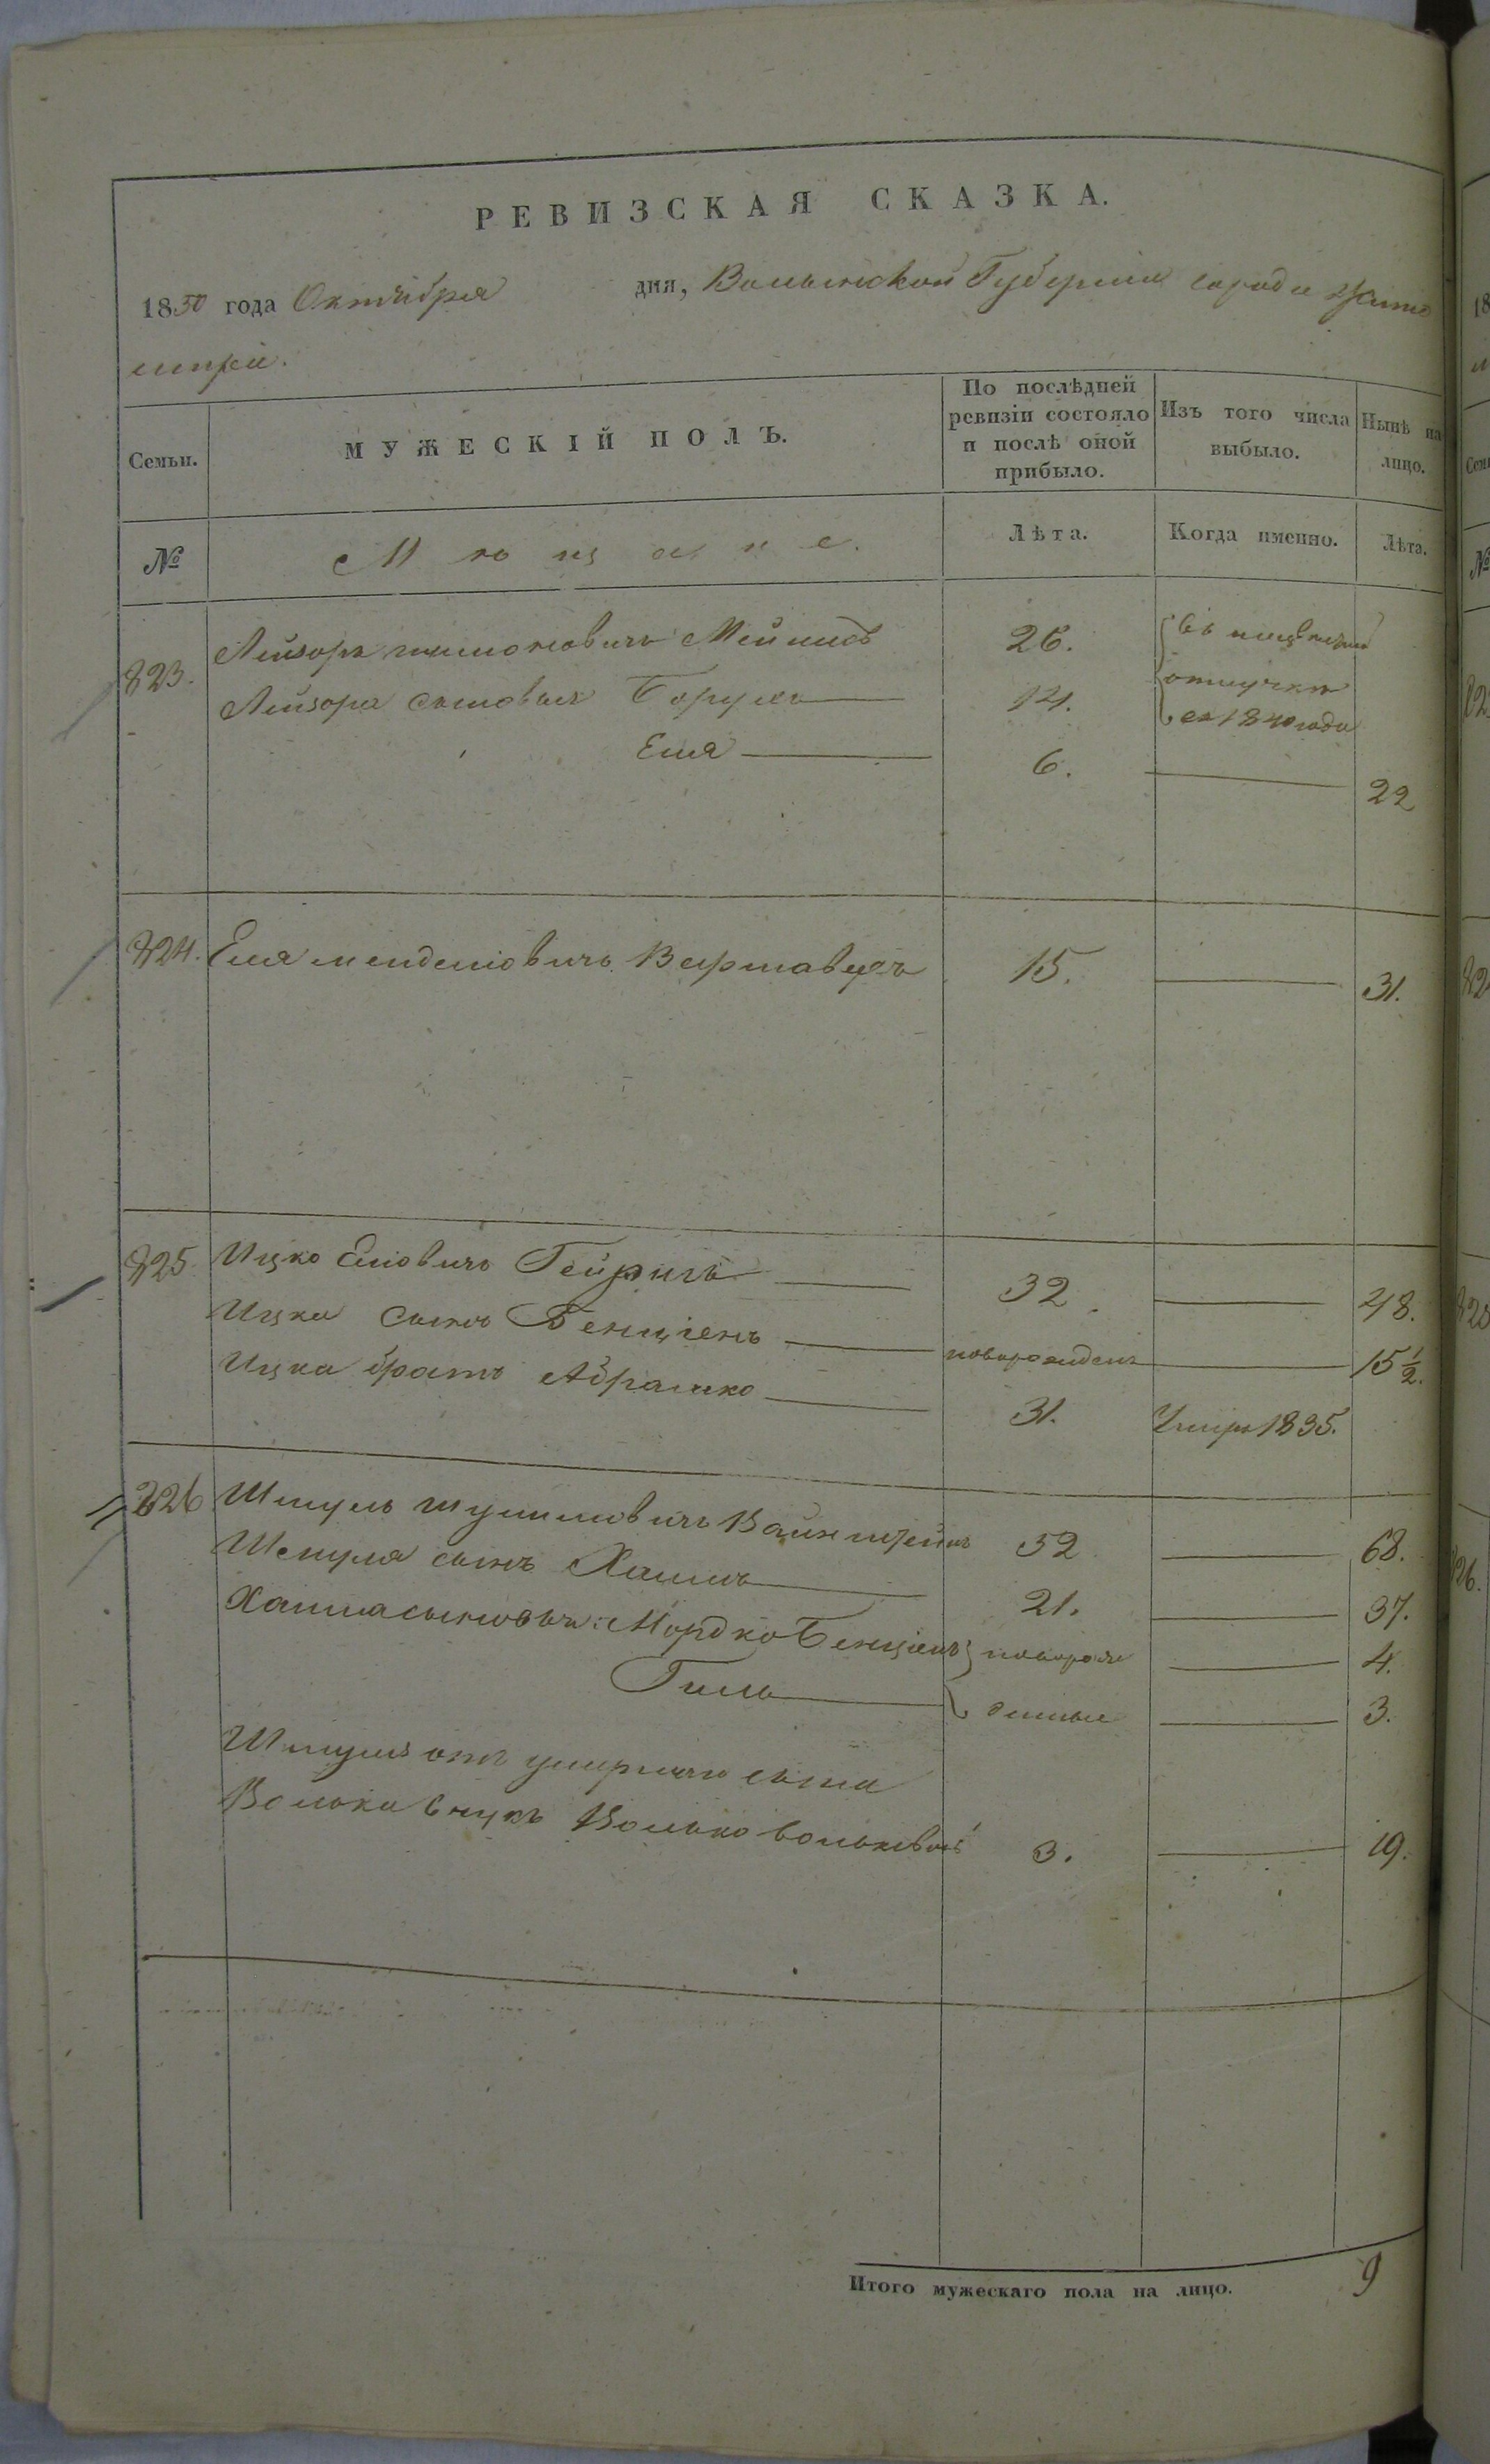 РЕВИЗСКАЯ СКАЗКА.
1850 года Октября дня, Волынской Губерніи города Жито
мира.
Семьи. МУЖЕСКІЙ ПОЛЪ. По послѣдней ревизіи состояло и послѣ оной прибыло. Изъ того числа выбыло. Нынѣ на лицо.
№ Мѣщане. Лѣта. Когда именно. Лѣта.
823. Лейзоръ 26.
Лейзора сыновья Борухъ 14. отлучкѣ
съ 1840 года
Еля 6. 22
824. Еля Менделіовичъ Варшаверъ 15. 31.
825 Ицко Еліовичъ 32. 48.
Ицка сынъ Бенціенъ новорожденъ 15½.
Ицка братъ Абрашко 31. Умеръ 1835.
826 Шмуль Шулимовичъ Вайнштейнъ 52 68.
Шмуля сынъ Хаимъ 21. 37.
Хаима сыновья: Мордко Бенціенъ новорож 4.
Гиль денные 3.
Шмуля отъ умершаго сына
Волька внукъ Волько 3. 19.
Итого мужескаго пола на лицо. 9